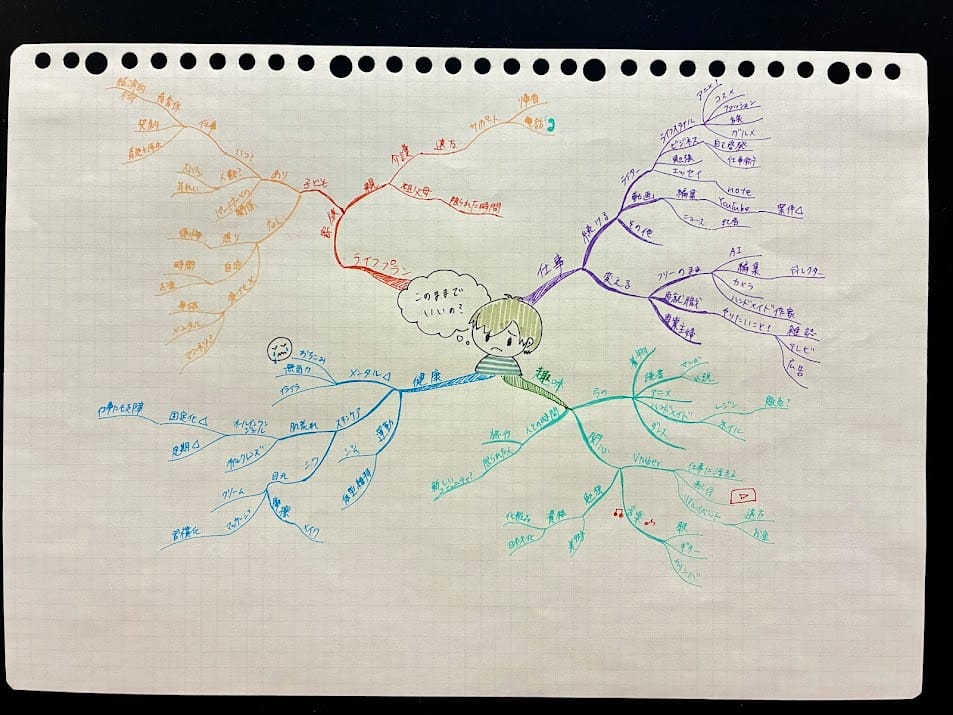 このままで
いいの?
仕事
続ける
ライター
ライフスタイル
アニメ?
コスメ
ファッション
グルメ
ビジネス
自己啓発
仕事紹介
勉強
エッセイ
note
動画
編集
YouTube
案件△
ニュース
記者
その他
変える
フリーのまま
AI
編集
ディレクター
カメラ
ハンドメイド作家
再就職
やりたいこと?
雑誌
テレビ
広告
専業主婦
趣味
もの
着物
読書
マンガ
小説
アニメ
ハンドメイド
レジン
販売?
ネイル
ダンス
関心
Vtuber
仕事に活きる
配信
リアルイベント
遠方
お金
音楽
歌
ギター
カリンバ
勉強
資格
化粧品
日本文化
美術
人との時間
旅行
限られた人
新しいコミュニティ?
健康
メンタル△
おちこみ
無気力
イライラ
スキンケア
肌荒れ
オールインワン
ジェル
固定化△
仕事にも支障
定期△
シワ
目元
クリーム
マッサージ?
習慣化
乾燥
メイク
運動
ジム
体型維持
ライフプラン
家族
親
介護
遠方
サポート
帰省
電話
祖父母
限られた時間
子ども
あり
いつ?
仕事
産育休
経済的
不可
契約
人数?
パートナーとの
関係
なし
周り
自由
時間
お金
身体
メンタル